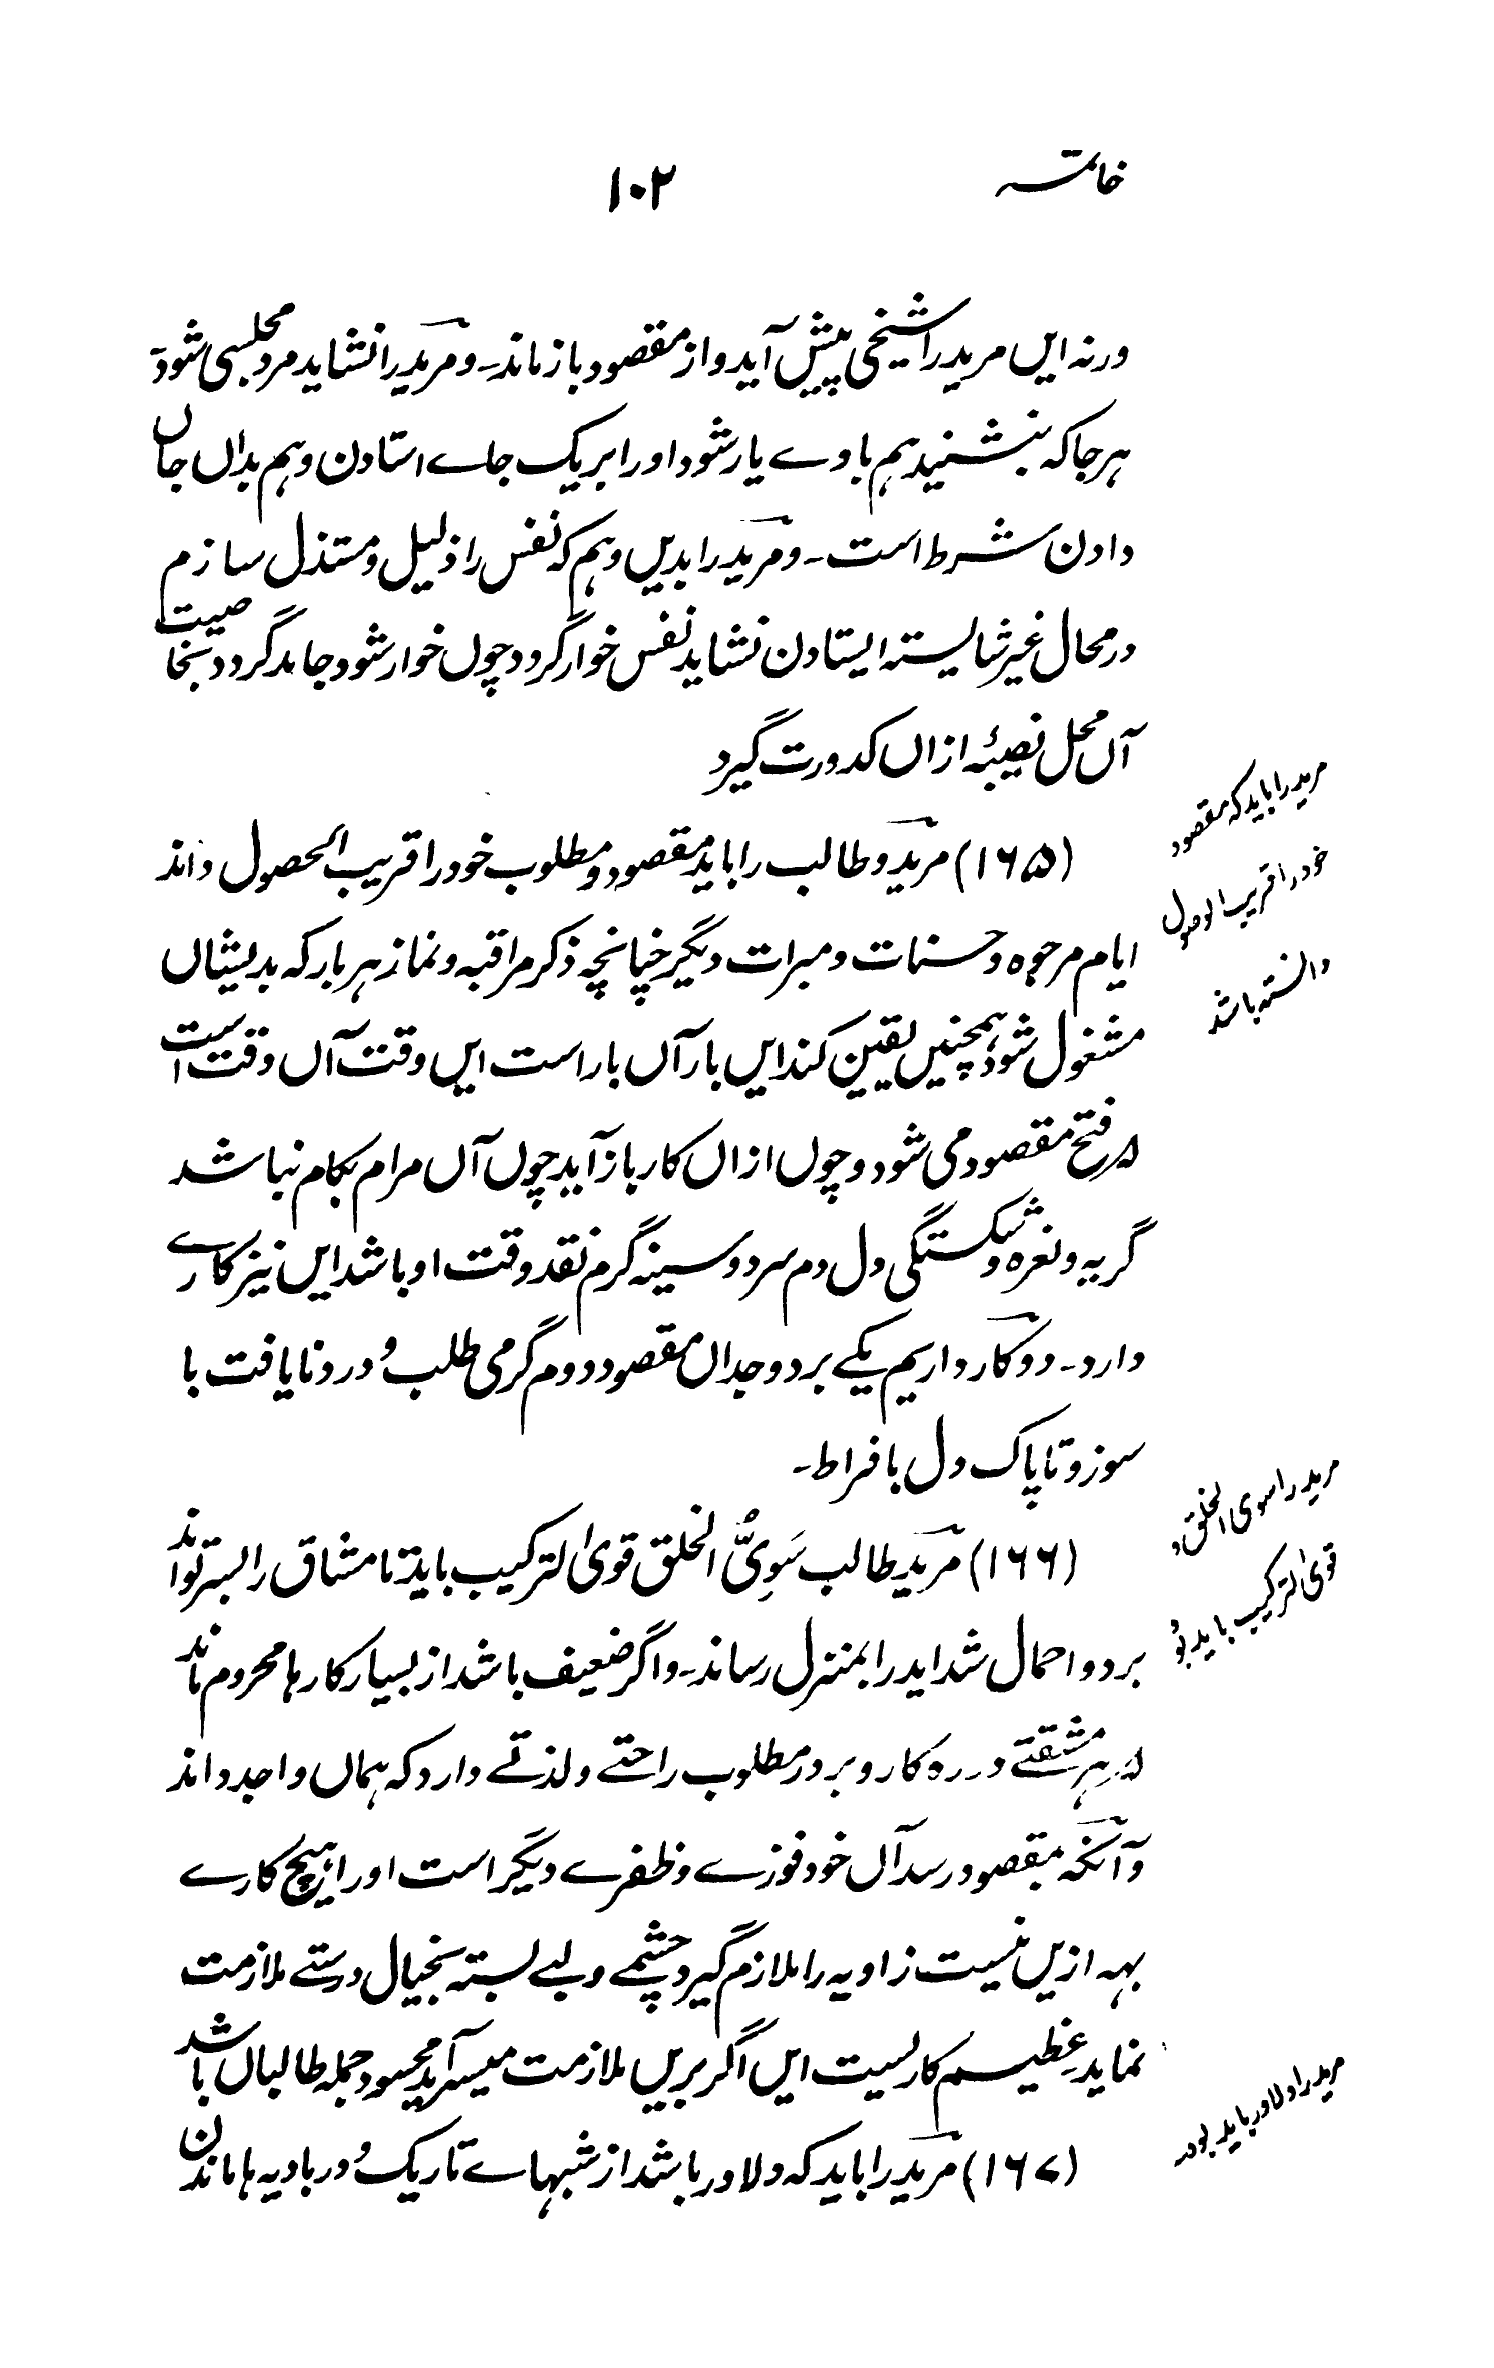 خاتمہ
۱۰۲
ورنہ ایں مرید را شیخی پیش آید و از مقصود باز ماند۔ و مرید را نشاید مرد مجلسی شود
ہر جا کہ بنشیند ہم با وے یار شود او را بر یک جاے استادن و ہم بداں جاں
دادن شرط است۔ و مرید را بدیں وہم کہ نفس را ذلیل و متذلل سازم
در محال غیر شایستہ ایستادن نشاید نفس خوار گردد چوں خوار شود جامد گردد بخاصیت
آں محل نصیبہٴ ازاں کدورت گیرد
مرید را باید کہ مقصود
خود را قریب الوصول
دانستہ باشد
(۱۶۵) مرید و طالب را باید مقصود و مطلوب خود را قریب الحصول داند
ایام مرجوہ و حسنات و مبرات دیگر چنانچہ ذکر مراقبہ و نماز ہر بار کہ بدیشاں
مشغول شود ہمچنیں یقین کند ایں بار آں بار است ایں وقت آں وقت است
کہ فتح مقصود می شود و چوں ازاں کار باز آید چوں آں مرام بکام نباشد
گریہ و نعرہ و شکستگی دل دم سرد و سینہ گرم نقد وقت او باشد ایں نیز کارے
دارد۔ دو کار داریم یکے برد وجدان مقصود دوم گرمی طلب و درد نایافت با
سوز و تاپاک دل بافراط۔
مرید را سوی الخلق و
قوی الترکیب باید بود
(۱۶۶) مرید طالب سَوِیُّ الخلق قوی الترکیب باید تا مشاق را بسر تواند
برد و احمال شداید را بمنزل رساند۔ و اگر ضعیف باشد از بسیار کارہا محروم ماند
کہ ہر مشقتے در رہ کار و برد مطلوب راحتے و لذتے دارد کہ ہماں واجد داند
و آنکہ بمقصود رسد آں خود فوزے و ظفرے دیگر است او را ہیچ کارے
بہہ ازیں نیست زاویہ را ملازم گیرد چشمے و لبے بستہ بخیال دوستے ملازمت
نماید عظیم کاریست ایں اگر بریں ملازمت میسر آید محسود جملہ طالباں باشد
مرید را دلاور باید بود
(۱۶۷) مرید را باید کہ دلاور باشد از شبہاے تاریک و در بادیہ ہا ماندن